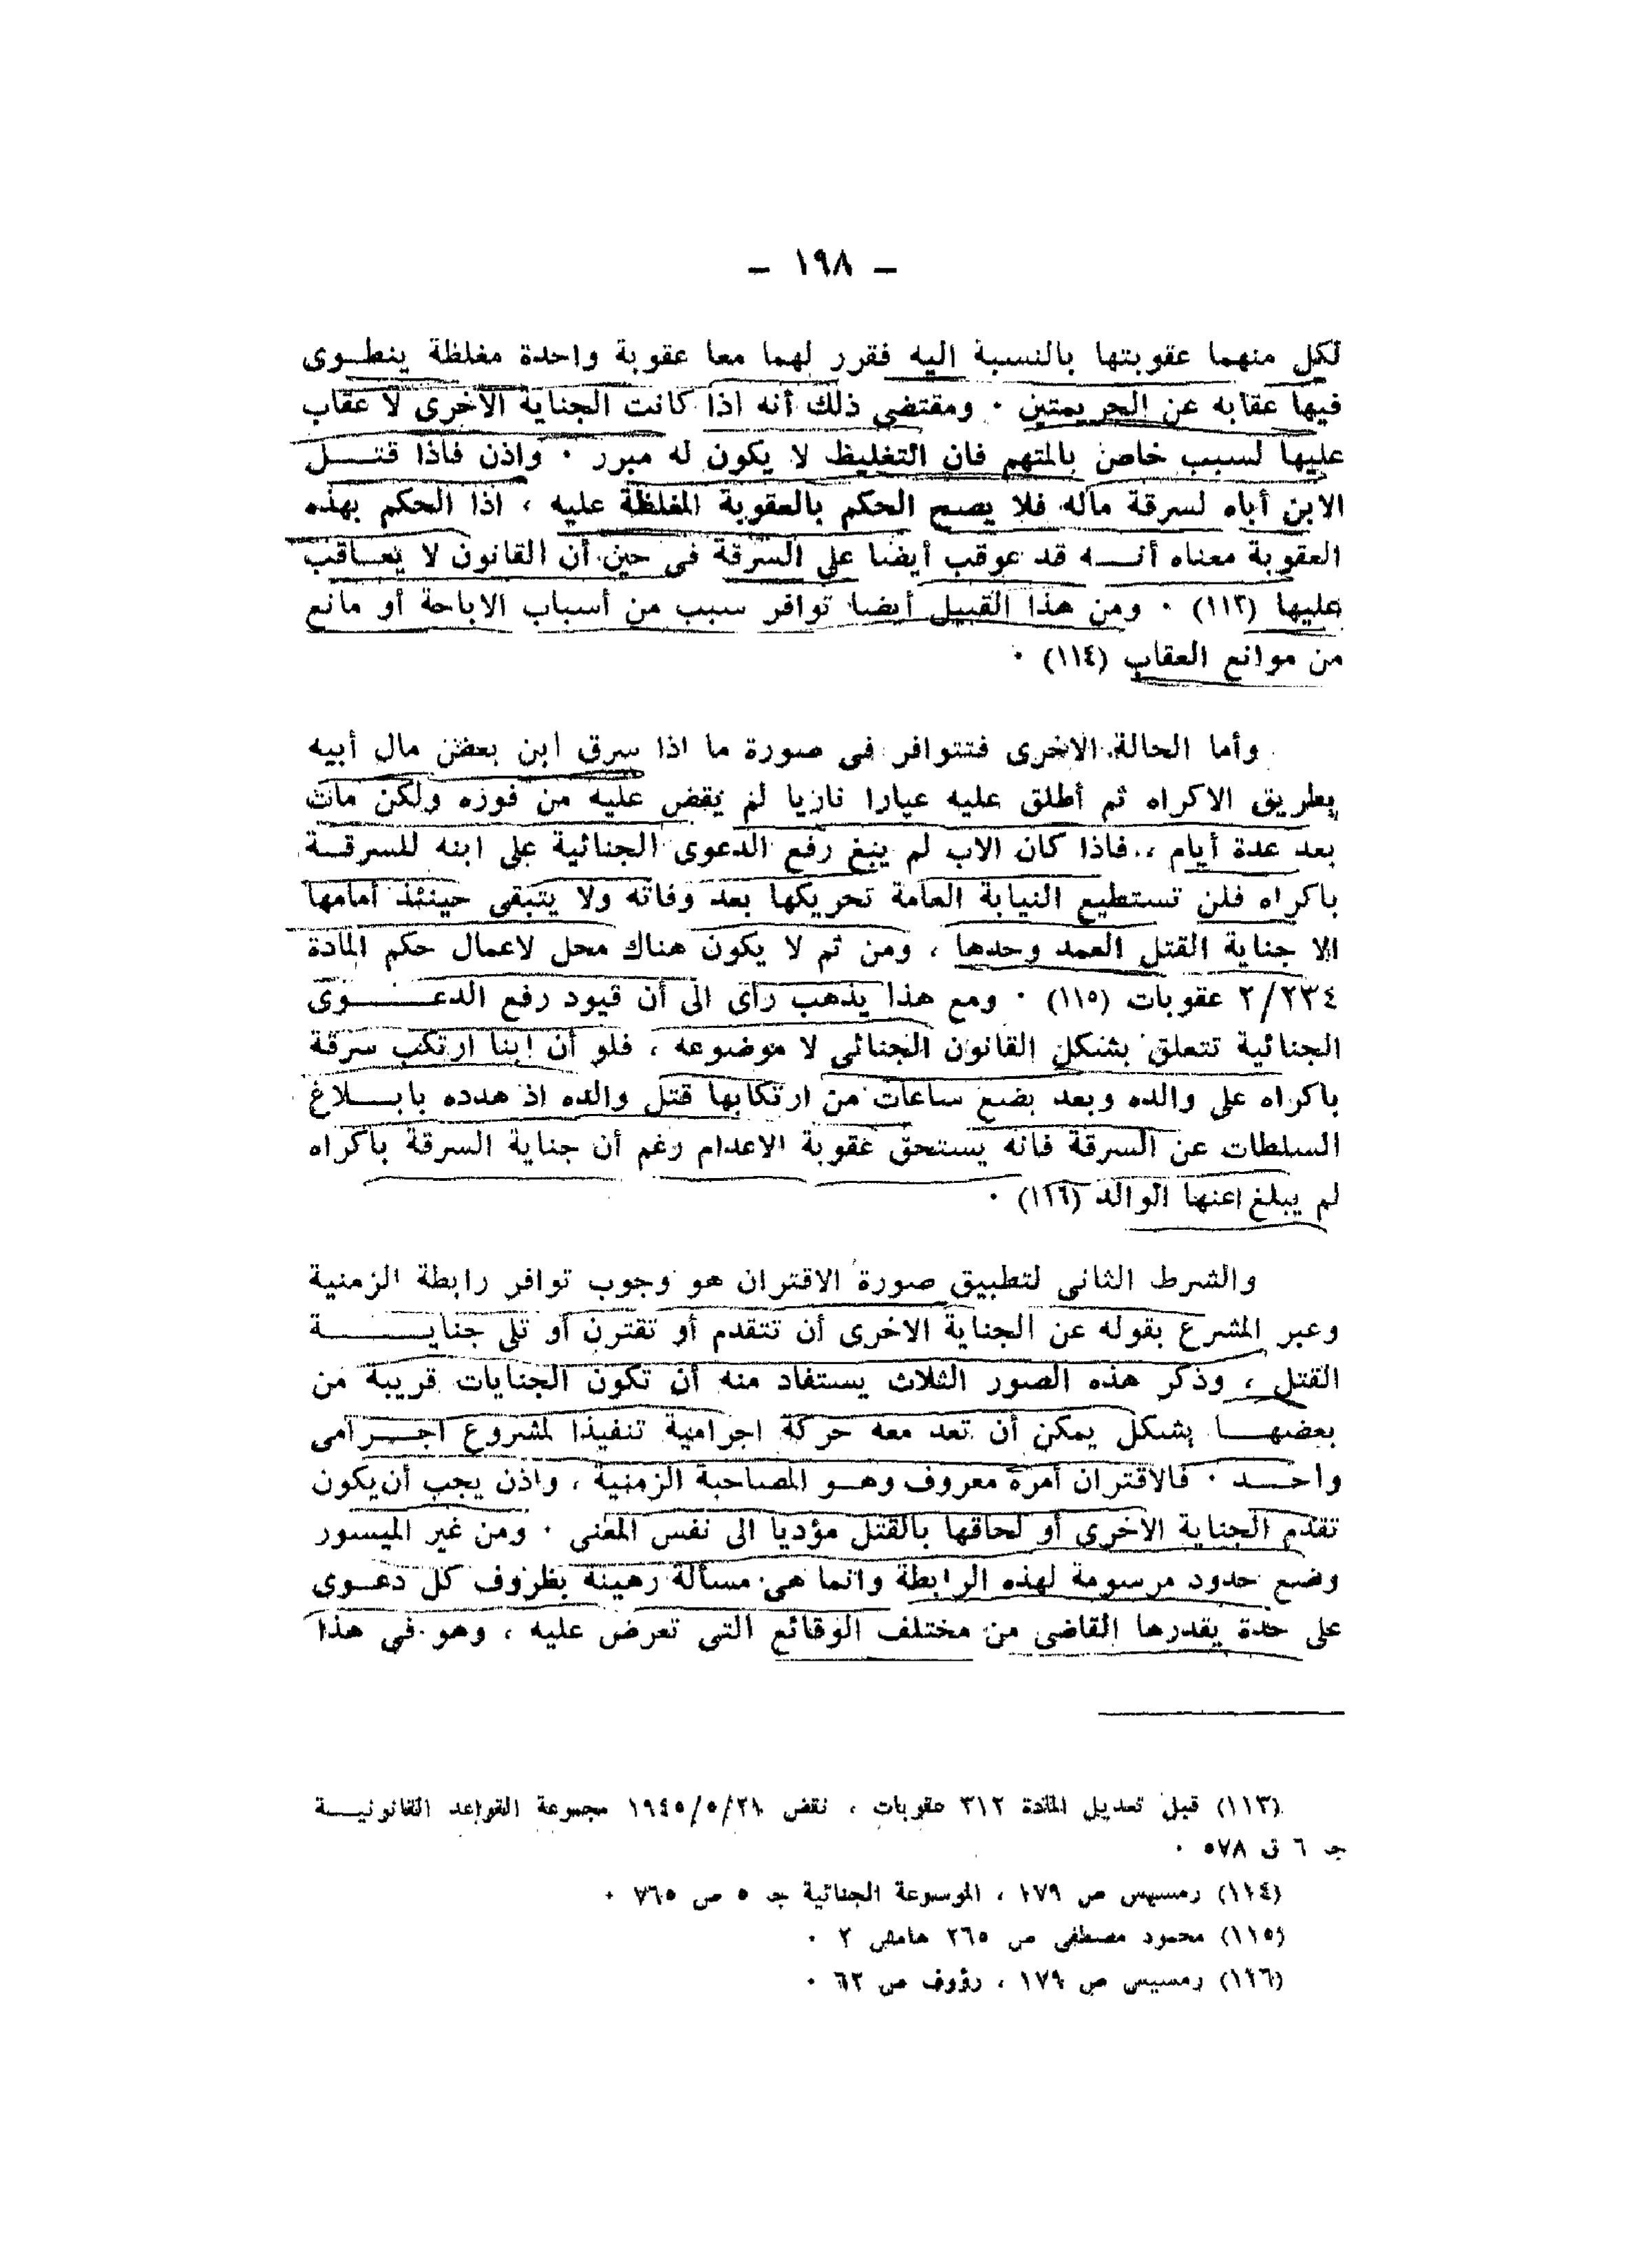 – ١٩٨ –
لكل منهما عقوبتها بالنسبة اليه فقرر لهما معا عقوبة واحدة مغلظة ينطوى
فيها عقابه عن الجريمتين ٠ ومقتضى ذلك أنه اذا كانت الجناية الاخرى لا عقاب
عليها لسبب خاص بالمتهم فان التغليظ لا يكون له مبرر ٠ واذن فاذا قتل
الابن أباه لسرقة ماله فلا يصح الحكم بالعقوبة المغلظة عليه ، اذا الحكم بهذه
العقوبة معناه أنه قد عوقب أيضا على السرقة فى حين أن القانون لا يعاقب
عليها (١١٣) ٠ ومن هذا القبيل أيضا توافر سبب من أسباب الاباحة أو مانع
من موانع العقاب (١١٤) ٠
وأما الحالة الاخرى فتتوافر فى صورة ما اذا سرق ابن بعض مال أبيه
بطريق الاكراه ثم أطلق عليه عيارا ناريا لم يقض عليه من فوره ولكن مات
بعد عدة أيام ، فاذا كان الاب لم يبغ رفع الدعوى الجنائية على ابنه للسرقة
باكراه فلن تستطيع النيابة العامة تحريكها بعد وفاته ولا يتبقى حينئذ أمامها
الا جناية القتل العمد وحدها ، ومن ثم لا يكون هناك محل لاعمال حكم المادة
٢/٢٣٤ عقوبات (١١٥) ٠ ومع هذا يذهب رأى الى أن قيود رفع الدعوى
الجنائية تتعلق بشكل القانون الجنائى لا موضوعه ، فلو أن ابنا ارتكب سرقة
باكراه على والده وبعد بضع ساعات من ارتكابها قتل والده اذ هدده بابلاغ
السلطات عن السرقة فانه يستحق عقوبة الاعدام رغم أن جناية السرقة باكراه
لم يبلغ عنها الوالد (١١٦) ٠
والشرط الثانى لتطبيق صورة الاقتران هو وجوب توافر رابطة الزمنية
وعبر المشرع بقوله عن الجناية الاخرى أن تتقدم أو تقترن أو تلى جناية
القتل ، وذكر هذه الصور الثلاث يستفاد منه أن تكون الجنايات قريبة من
بعضها بشكل يمكن أن تعد معه حركة اجرامية تنفيذا لمشروع اجرامى
واحد ٠ فالاقتران أمره معروف وهو المصاحبة الزمنية ، واذن يجب أن يكون
تقدم الجناية الاخرى أو لحاقها بالقتل مؤديا الى نفس المعنى ٠ ومن غير الميسور
وضع حدود مرسومة لهذه الرابطة وانما هى مسألة رهينة بظروف كل دعوى
على حدة يقدرها القاضى من مختلف الوقائع التى تعرض عليه ، وهو فى هذا
(١١٣) قبل تعديل المادة ٣١٢ عقوبات ، نقض ١٩٤٥/٥/٢٨ مجموعة القواعد القانونية
جـ ٦ ق ٥٧٨ ٠
(١١٤) رمسيس ص ١٧٩ ، الموسوعة الجنائية جـ ٥ ص ٧٦٥ ٠
(١١٥) محمود مصطفى ص ٢٦٥ هامش ٢ ٠
(١١٦) رمسيس ص ١٧٩ ، رؤوف ص ٦٢ ٠